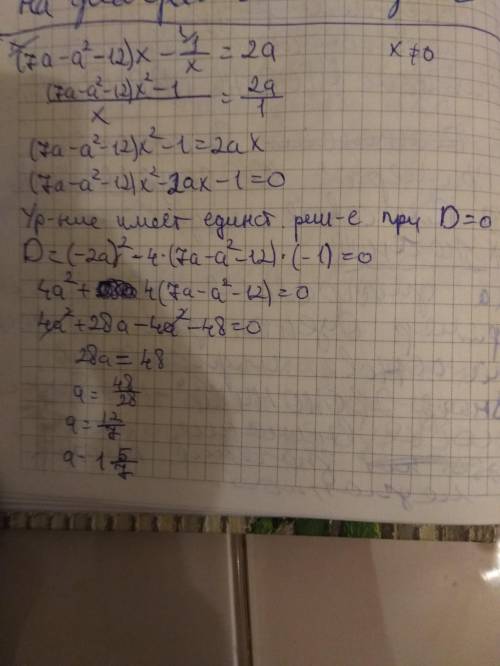 на
(7a-a²-12)x - 1/x = 2a x≠0
(7a-a²-12)x²-1/x = 2a/1
(7a-a²-12)x²-1=2ax
(7a-a²-12)x²-2ax-1=0
Ур-ние имеет единст. реш-е при D=0
D=(-2a)²-4·(7a-a²-12)·(-1)=0
4a²+4(7a-a²-12)=0
4a²+28a-4a²-48=0
28a=48
a=48/28
a=12/7
a-1 5/7